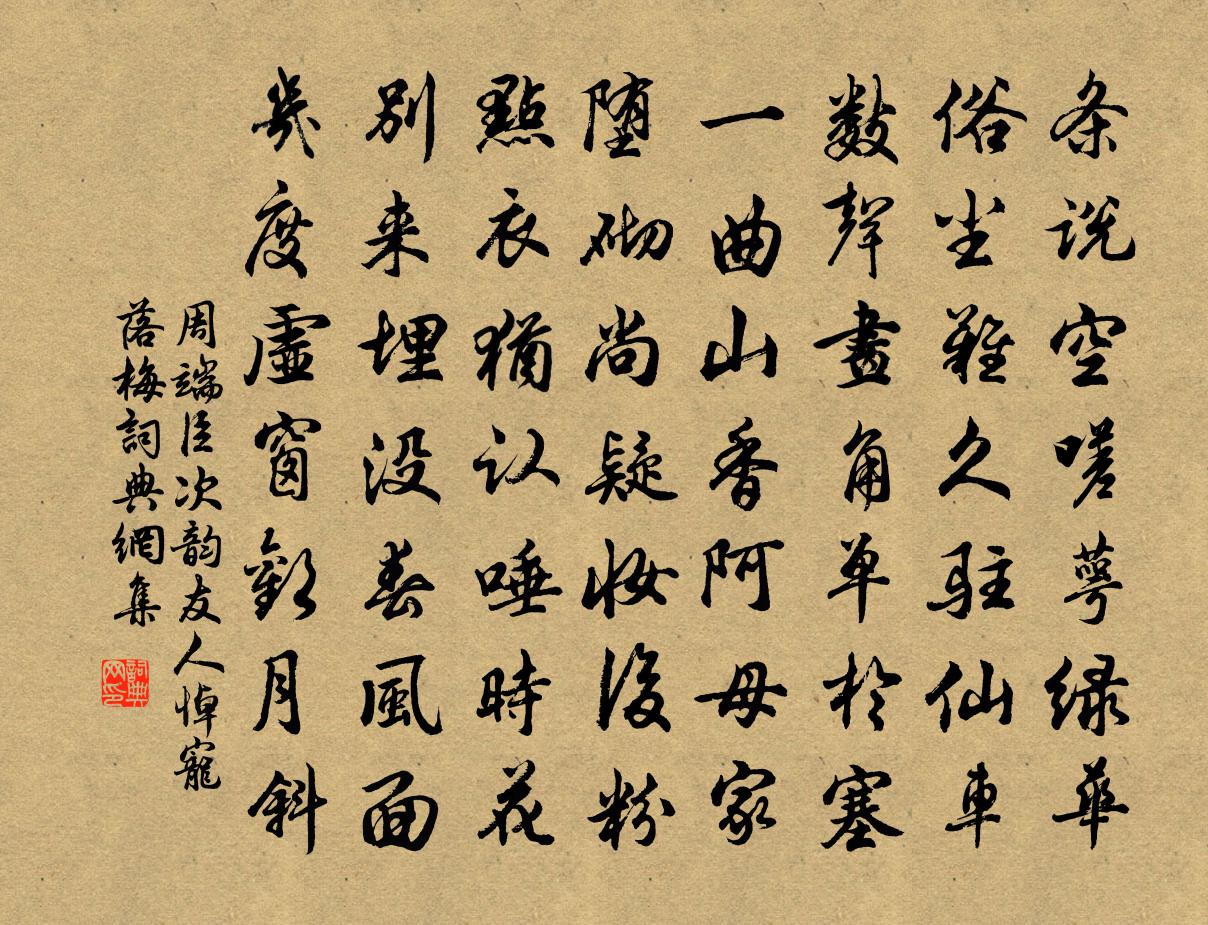 条说空嗟萼绿华
俗尘难久驻仙车
数声画角单于塞
一曲山香阿母家
堕砌尚疑妆后粉
點衣犹认唾時花
别来埋没春風面
幾度虚窗對月斜
周端臣次韵友人悼寵
落梅詞典網集
詞典网印